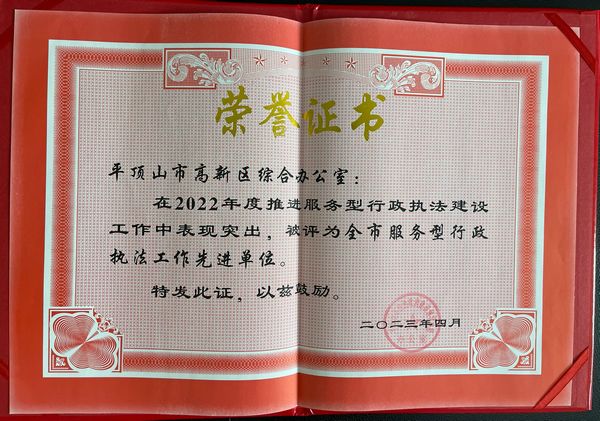 荣誉证书
平顶山市高新区综合办公室：
在2022年度推进服务型行政执法建设
工作中表现突出，被评为全市服务型行政
执法工作先进单位。
特发此证，以兹鼓励。
二〇二三年四月